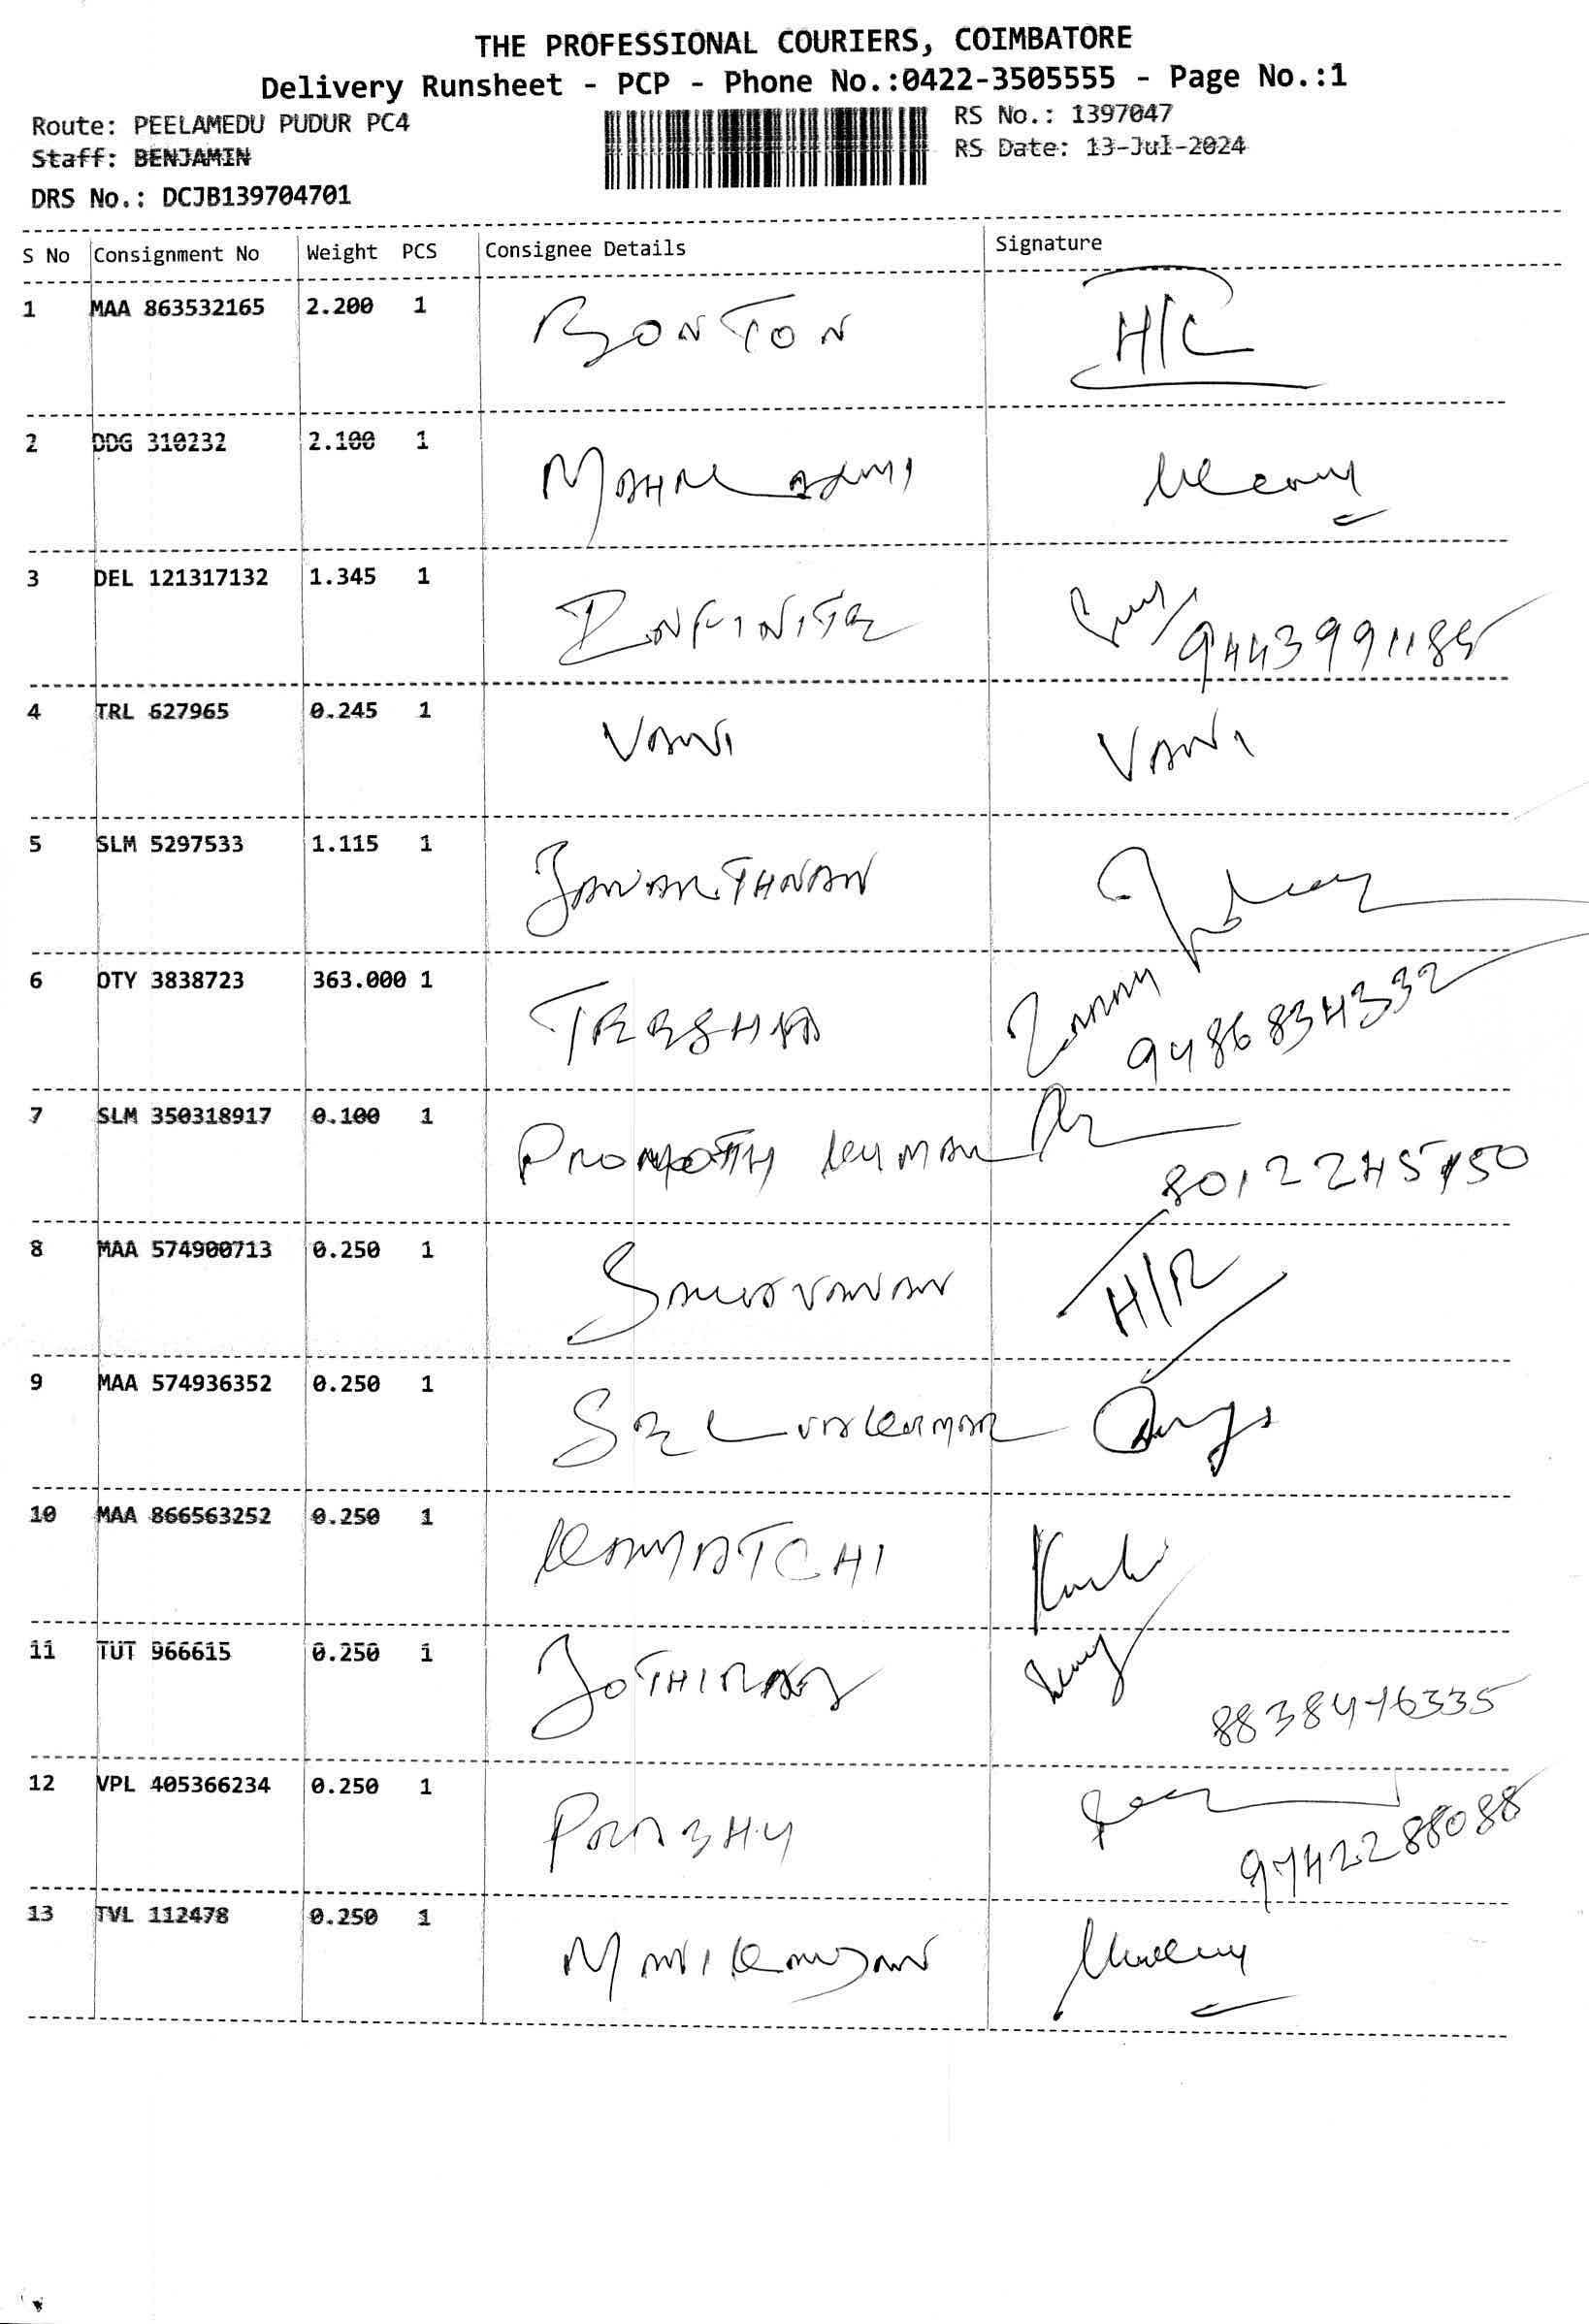 THE PROFESSIONAL COURIERS, COIMBATORE
Delivery Runsheet - PCP - Phone No.:0422-3505555 - Page No.:1
Route: PEELAMEDU PUDUR PC4
RS No.: 1397047
Staff: BENJAMIN
RS Date: 13-Jul-2024
DRS No.: DCJB139704701
S No Consignment No Weight PCS Consignee Details Signature
1 MAA 863532165 2.200 1 BONTON H/C
2 DDG 310232 2.100 1
3 DEL 121317132 1.345 1 INFINITE 9443991185
4 TRL 627965 0.245 1 VANI VANI
5 SLM 5297533 1.115 1
6 OTY 3838723 363.000 1 TREESHA
9486834332
7 SLM 350318917 0.100 1 KUMAR
8 MAA 574900713 0.250 1 H/R
9 MAA 574936352 0.250 1 SELVAKUMAR
10 MAA 866563252 0.250 1 KAMATCHI
11 TUT 966615 0.250 1 JOTHIRAJ
12 VPL 405366234 0.250 1 PRABHU
13 TVL 112478 0.250 1 MANIKANDAN